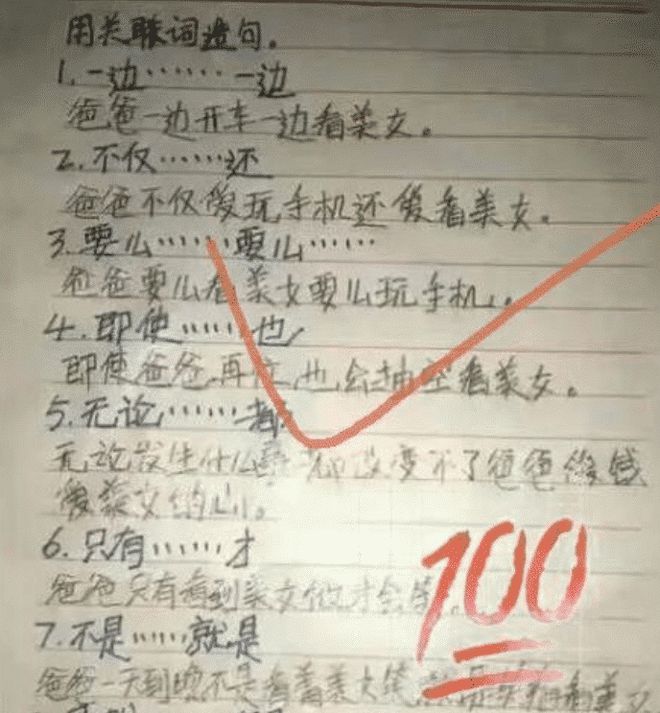 用关联词造句。
1.一边……一边
爸爸一边开车一边看美女。
2.不仅……还
爸爸不仅爱玩手机还爱看美女。
3.要么……要么……
爸爸要么看美女要么玩手机。
4.即使……也
即使爸爸再忙,也会抽空看美女。
5.无论……都
无论发生什么事都改变不了爸爸
爱美女的心。
6.只有……才
爸爸只有看到美女他才会笑。
100
7.不是……就是
爸爸一天到晚不是看着美女笑,就是看美女